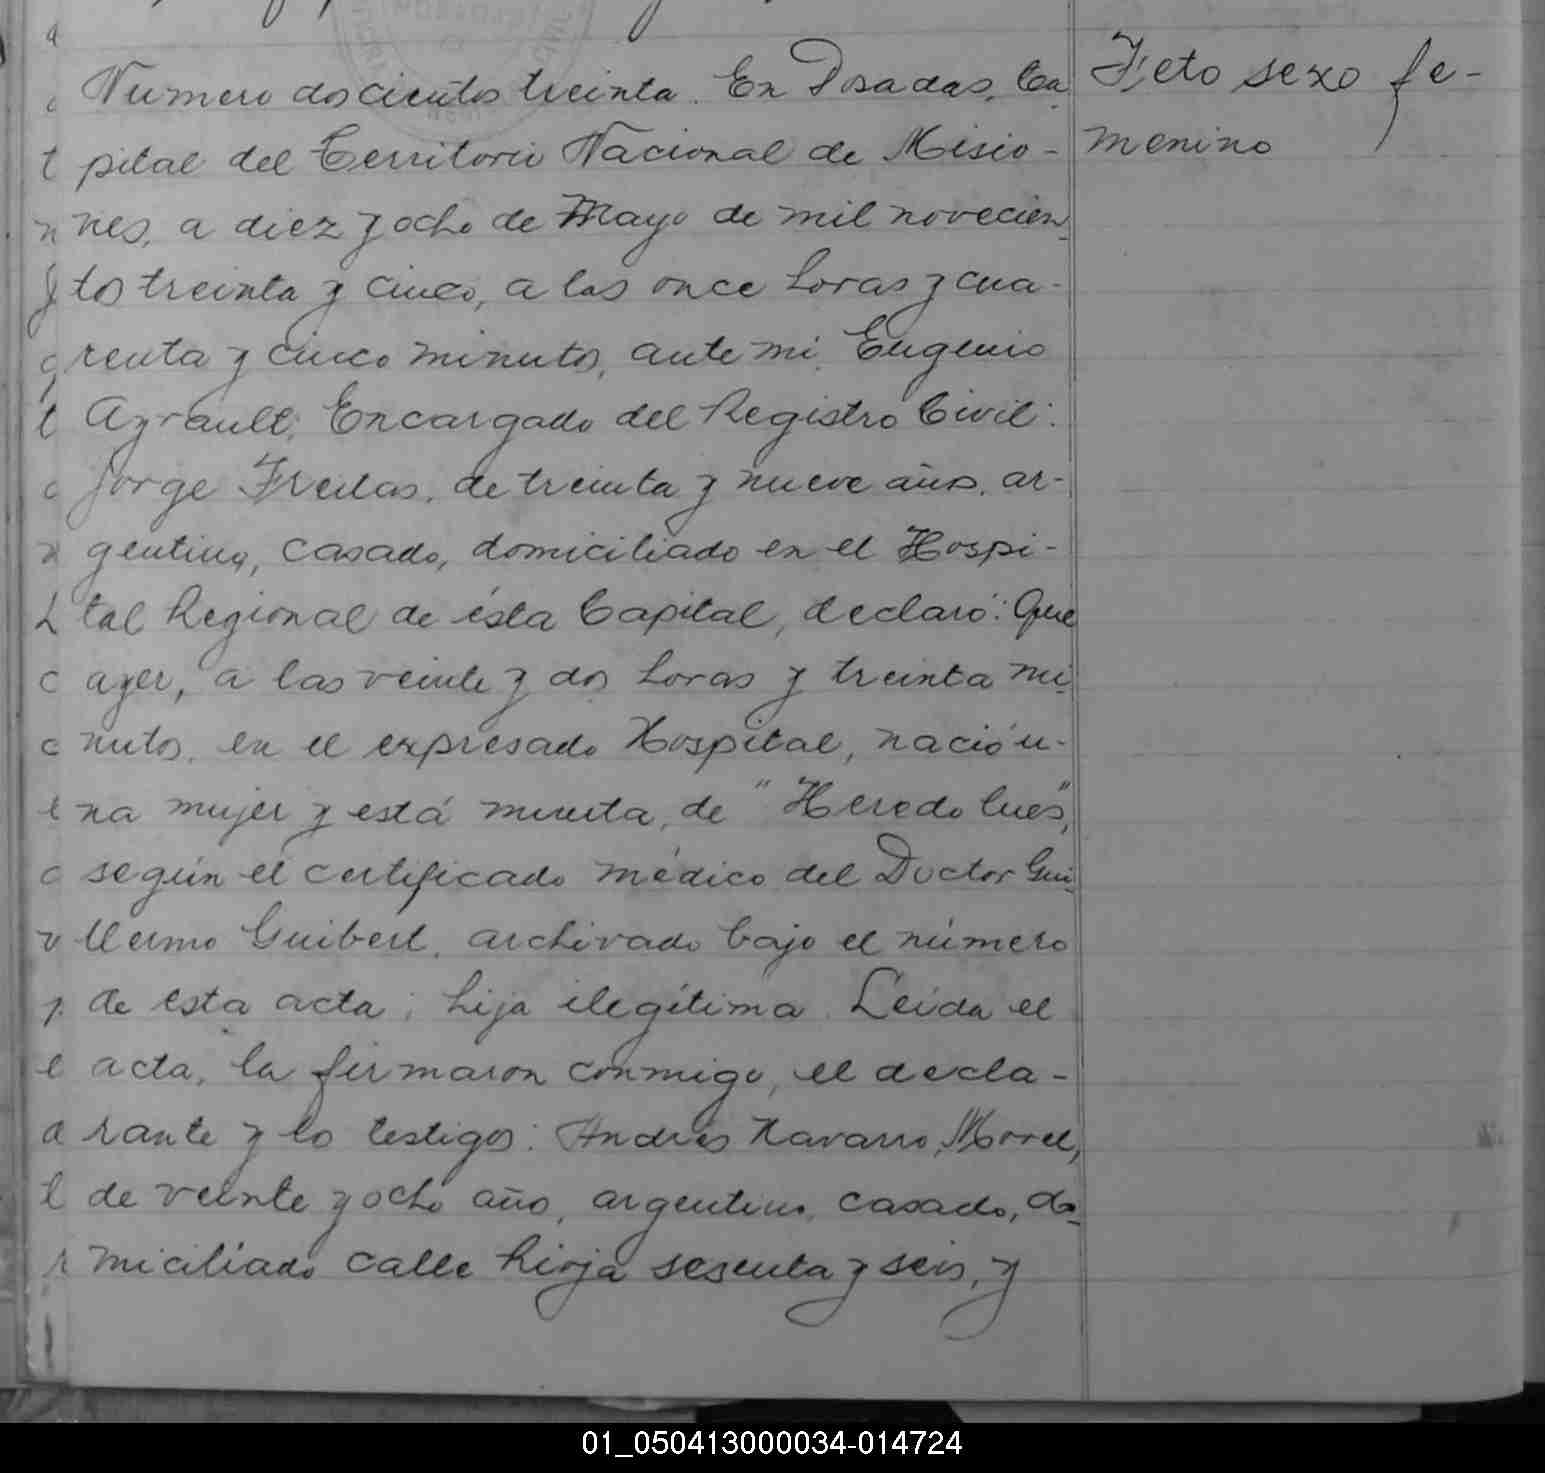 Numero doscientos treinta. En Posadas, Ca
pital del Territorio Nacional de Misio-
nes, a diez y ocho de Mayo de mil novecien
tos treinta y cinco, a las once horas y cua-
renta y cinco minutos, ante mi, Eugenio
Ayrault, Encargado del Registro Civil:
Jorge Freitas, de treinta y nueve años, ar-
gentino, casado, domiciliado en el Hospi-
tal Regional de ésta Capital, declaró: Que
ayer, a las veinte y dos horas y treinta mi
nutos, en el expresado Hospital, nació u-
na mujer y está muerta, de "Heredo lues",
según el certificado médico del Doctor Gui
llermo Guibert, archivado bajo el número
de esta acta; hija ilegítima. Leida el
acta, la firmaron conmigo, el decla-
rante y los testigos: Andrés Navarro Morel,
de veinte y ocho años, argentino, casado, do
miciliado calle Rioja sesenta y seis, y
Feto sexo fe-
menino
01_050413000034-014724